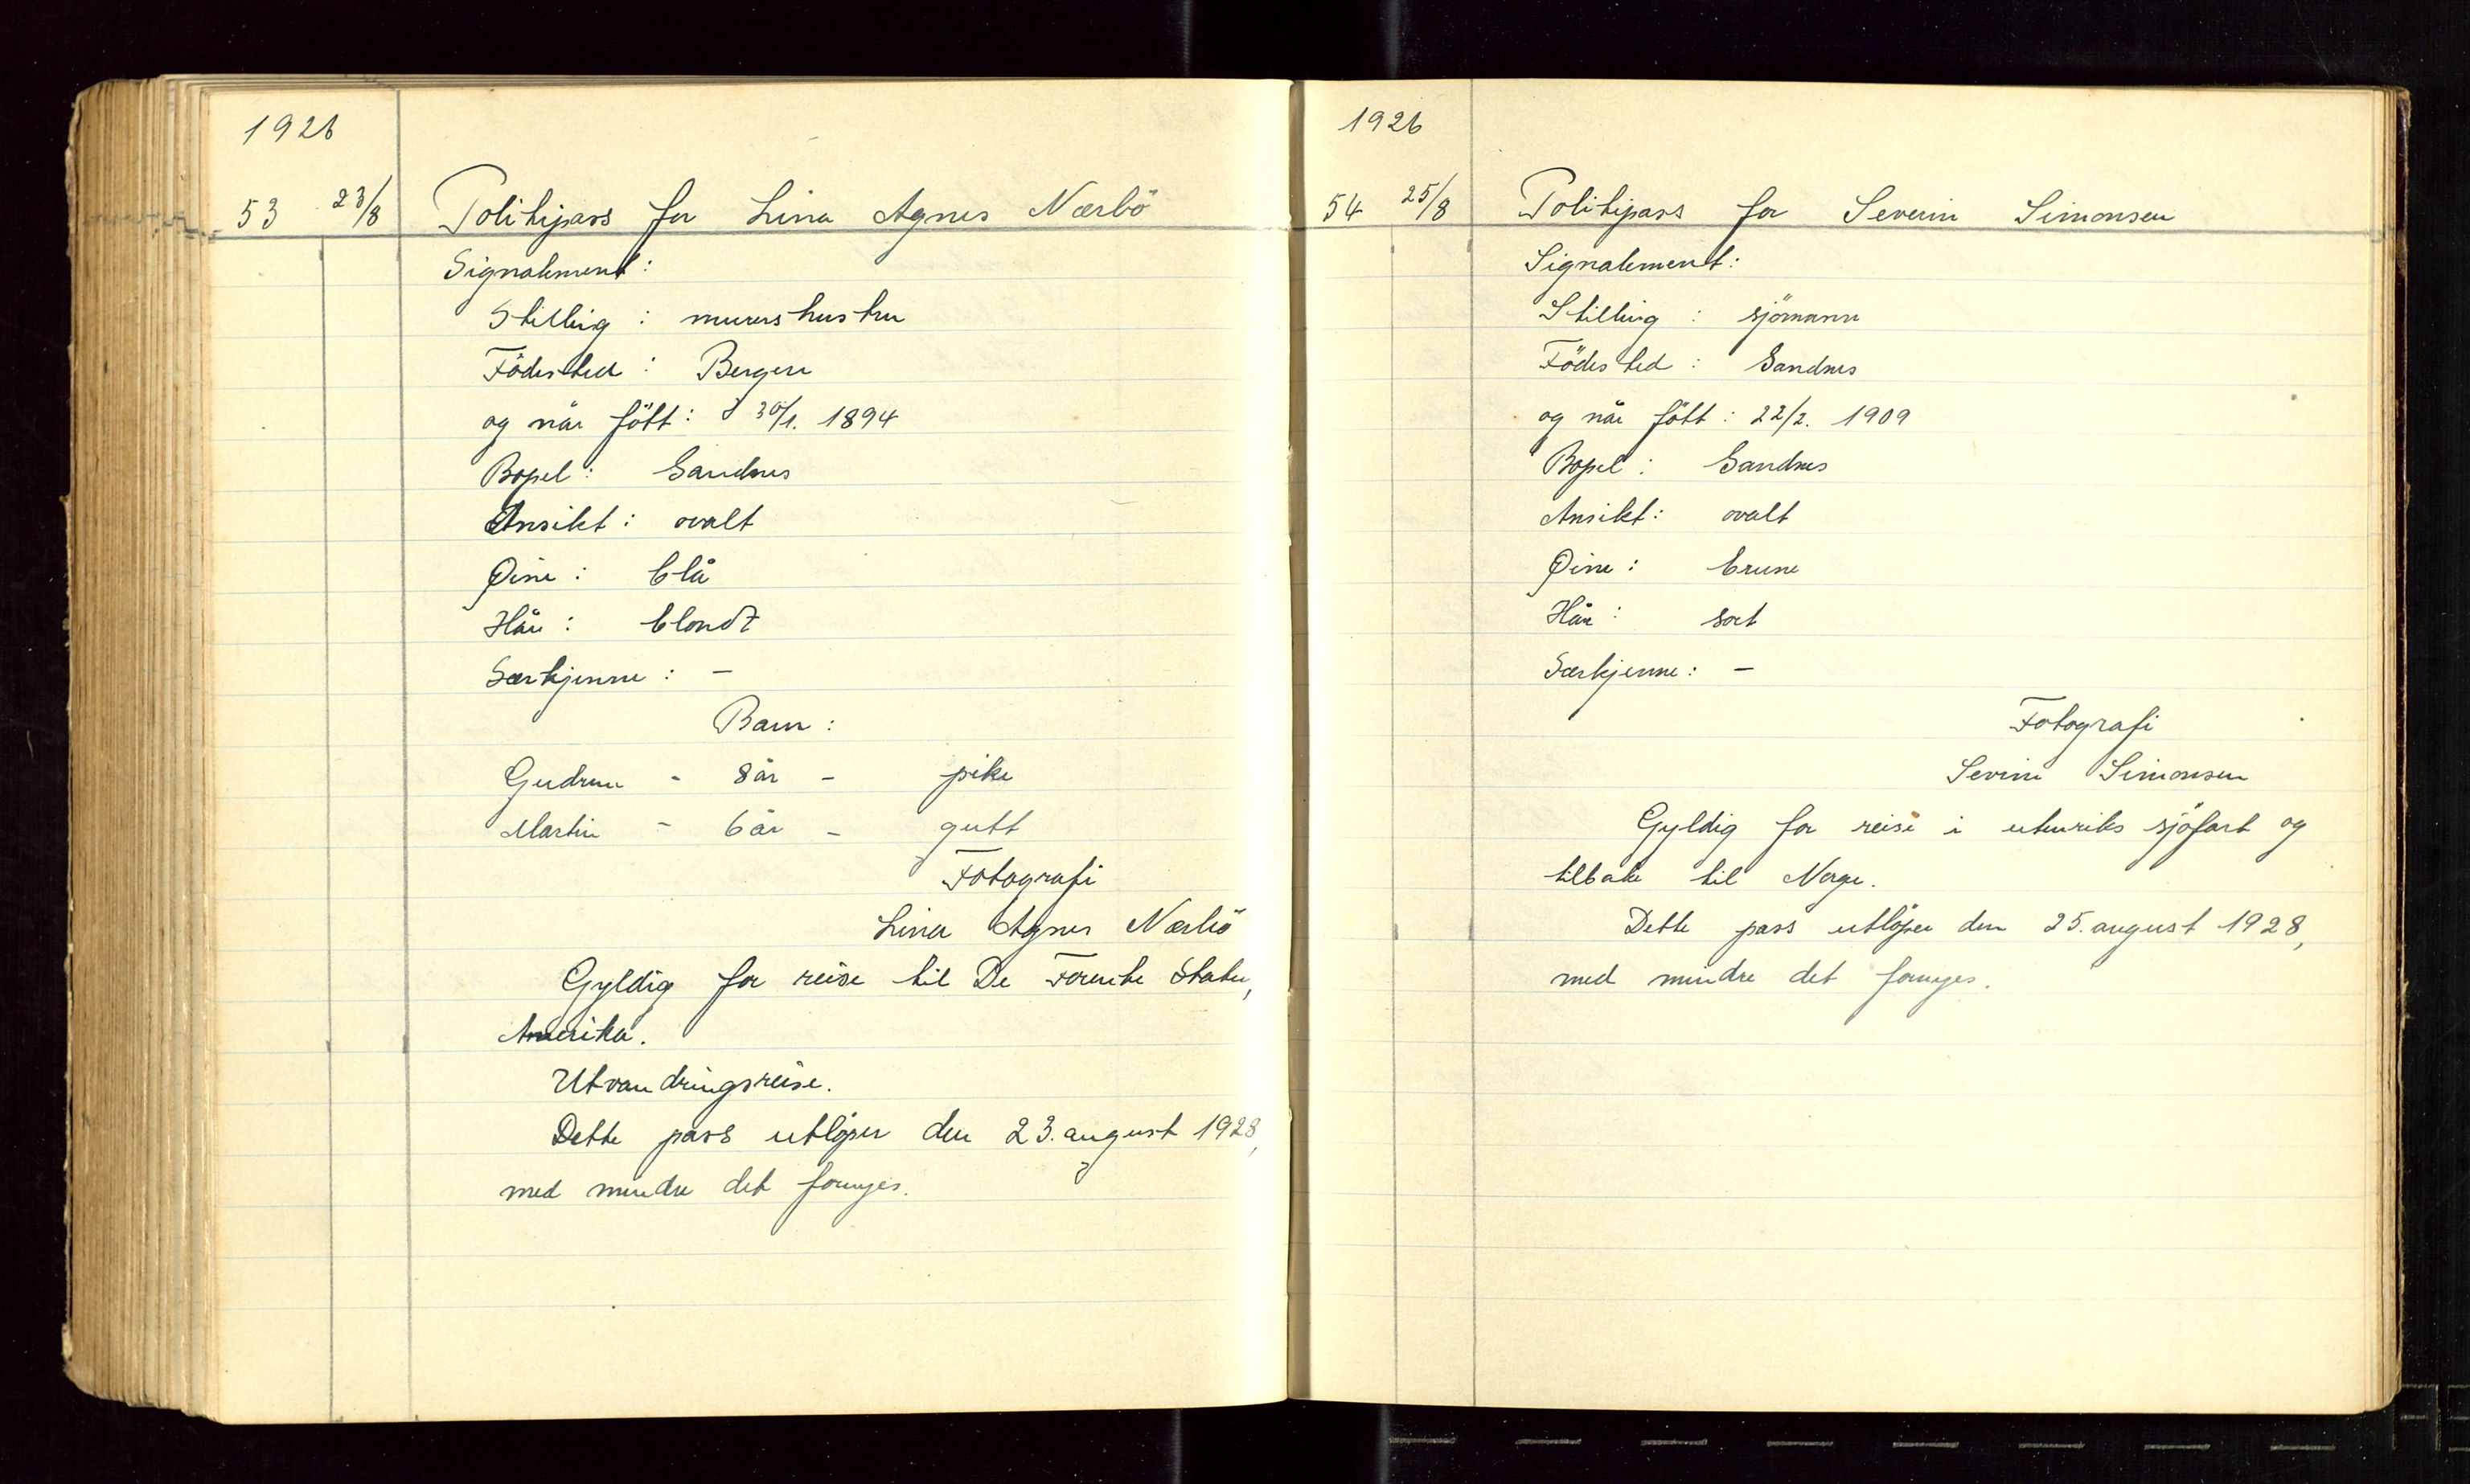 1926
53 23/8 Politipass for Lina Agnes Nærbö
Signalement:
Stilling : murershustru
Födested : Bergen
og når født : 30/1. 1894
Bopel : Sandnes
Ansikt : ovalt
Øine : blå
Hår : blondt
Særkjenne : –
Barn :
Gudrun - 8 år - pike
Martin - 6 år - gutt
Fotografi
Lina Agnes Nærbö
Gyldig for reise til De Forente Stater,
Amerika.
Utvandringsreise.
Dette pass utløper den 23. august 1928,
med mindre det fornyes.
1926
54 25/8 Politipass for Severin Simonsen
Signalement:
Stilling : sjömann
Födested : Sandnes
og når født : 22/2. 1909
Bopel : Sandnes
Ansikt : ovalt
Øine : brune
Hår : sort
Særkjenne : –
Fotografi
Severin Simonsen
Gyldig for reise i utenriks sjöfart og
tilbake til Norge.
Dette pass utlöper den 25. august 1928,
med mindre det fornyes.